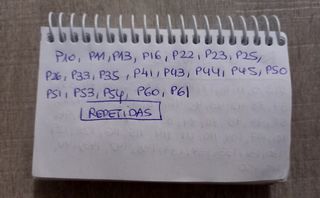 P10, P11, P13, P16, P22, P23, P25,
P26, P33, P35, P41, P43, P44, P45, P50
P51, P53, P54, P60, P61
REPETIDAS